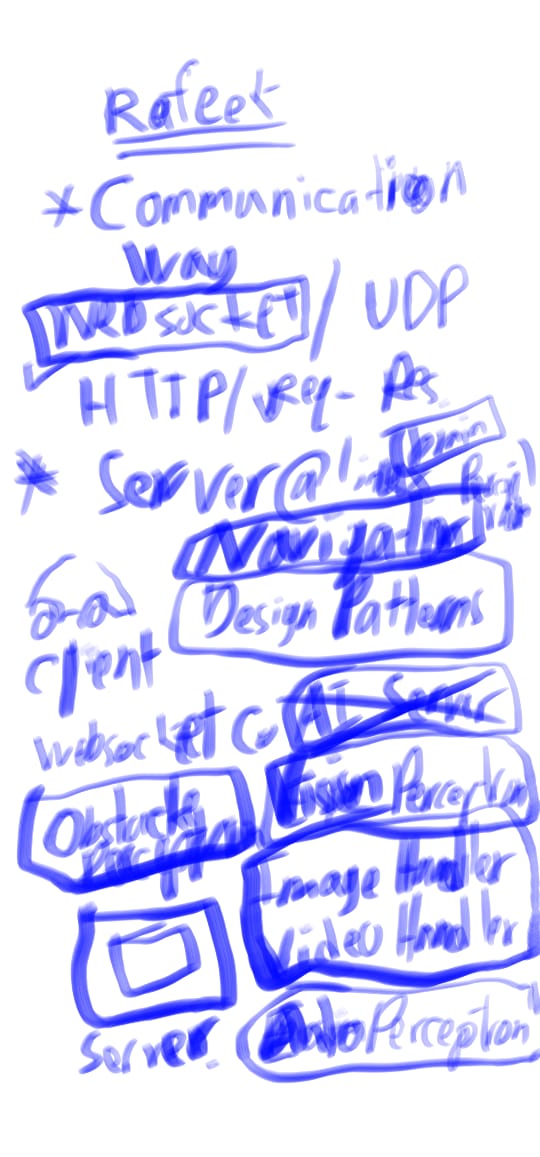 Rafeek
* Communication
Way
Websocket / UDP
HTTP / req - Res
* Server @
Navigator
Design Patterns
Client
websocket Co
AI Server
Fusion Perception
Obstacle
Perception
Image Handler
Video Handler
Server
Perception